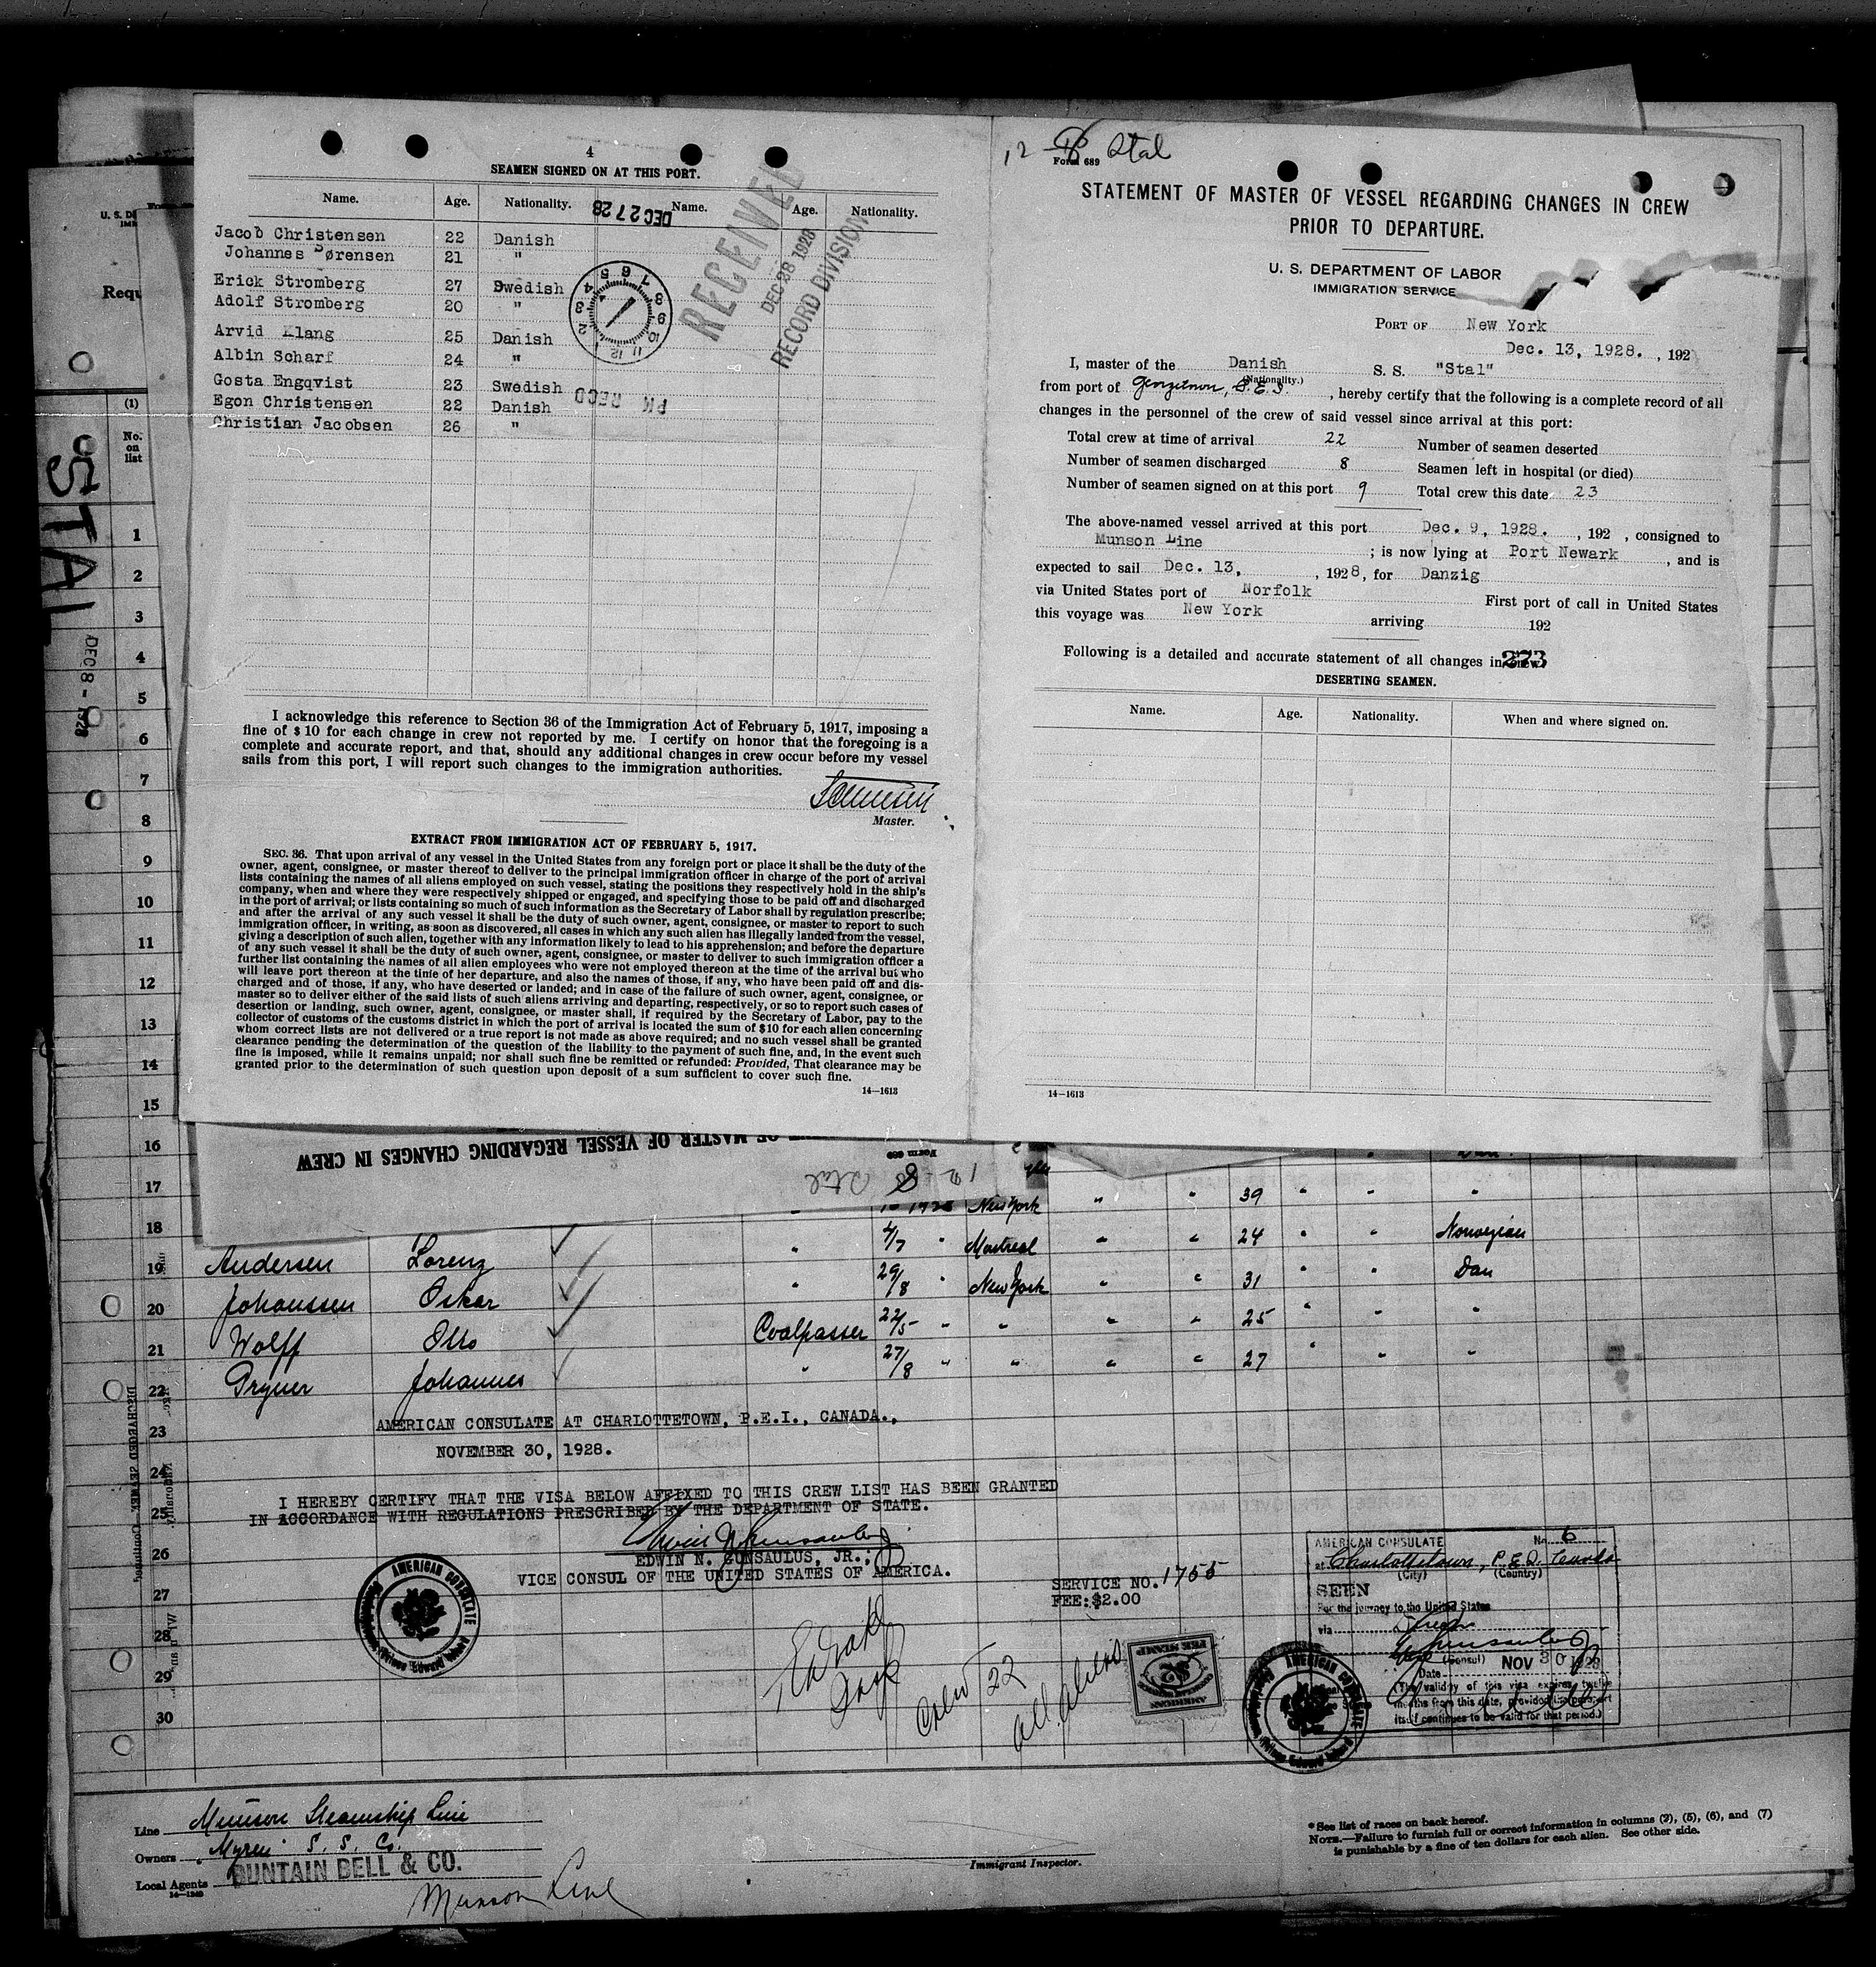 4
SEAMEN SIGNED ON AT THIS PORT.
Name. Age. Nationality. Name. Age. Nationality.
DEC 27 28
RECEIVED
DEC 28 1928
RECORD DIVISION
Jacob Christensen 22 Danish
Johannes Sørensen 21 "
Erick Stromberg 27 Swedish
Adolf Stromberg 20 "
Arvid Klang 25 Danish
Albin Scharf 24 "
Gosta Engqvist 23 Swedish
Egon Christensen 22 Danish
Christian Jacobsen 26 "
PM RECD
I acknowledge this reference to Section 36 of the Immigration Act of February 5, 1917, imposing a
fine of $10 for each change in crew not reported by me. I certify on honor that the foregoing is a
complete and accurate report, and that, should any additional changes in crew occur before my vessel
sails from this port, I will report such changes to the immigration authorities.
Master.
EXTRACT FROM IMMIGRATION ACT OF FEBRUARY 5, 1917.
SEC. 36. That upon arrival of any vessel in the United States from any foreign port or place it shall be the duty of the
owner, agent, consignee, or master thereof to deliver to the principal immigration officer in charge of the port of arrival
lists containing the names of all aliens employed on such vessel, stating the positions they respectively hold in the ship's
company, when and where they were respectively shipped or engaged, and specifying those to be paid off and discharged
in the port of arrival; or lists containing so much of such information as the Secretary of Labor shall by regulation prescribe;
and after the arrival of any such vessel it shall be the duty of such owner, agent, consignee, or master to report to such
immigration officer, in writing, as soon as discovered, all cases in which any such alien has illegally landed from the vessel,
giving a description of such alien, together with any information likely to lead to his apprehension; and before the departure
of any such vessel it shall be the duty of such owner, agent, consignee, or master to deliver to such immigration officer a
further list containing the names of all alien employees who were not employed thereon at the time of the arrival but who
will leave port thereon at the time of her departure, and also the names of those, if any, who have been paid off and dis-
charged and of those, if any, who have deserted or landed; and in case of the failure of such owner, agent, consignee, or
master so to deliver either of the said lists of such aliens arriving and departing, respectively, or so to report such cases of
desertion or landing, such owner, agent, consignee, or master shall, if required by the Secretary of Labor, pay to the
collector of customs of the customs district in which the port of arrival is located the sum of $10 for each alien concerning
whom correct lists are not delivered or a true report is not made as above required; and no such vessel shall be granted
clearance pending the determination of the question of the liability to the payment of such fine, and, in the event such
fine is imposed, while it remains unpaid; nor shall such fine be remitted or refunded: Provided, That clearance may be
granted prior to the determination of such question upon deposit of a sum sufficient to cover such fine.
14—1613
12 - 8 Stal
Form 689
STATEMENT OF MASTER OF VESSEL REGARDING CHANGES IN CREW
PRIOR TO DEPARTURE.
U. S. DEPARTMENT OF LABOR
IMMIGRATION SERVICE
PORT OF New York
Dec. 13, 1928. , 192
I, master of the Danish S. S. "Stal"
(Nationality.)
from port of Georgetown, P.E.I. , hereby certify that the following is a complete record of all
changes in the personnel of the crew of said vessel since arrival at this port:
Total crew at time of arrival 22 Number of seamen deserted
Number of seamen discharged 8 Seamen left in hospital (or died)
Number of seamen signed on at this port 9 Total crew this date 23
The above-named vessel arrived at this port Dec. 9, 1928. , 192 , consigned to
Munson Line ; is now lying at Port Newark , and is
expected to sail Dec. 13, , 1928, for Danzig
via United States port of Norfolk First port of call in United States
this voyage was New York arriving 192
Following is a detailed and accurate statement of all changes in crew.
273
DESERTING SEAMEN.
Name. Age. Nationality. When and where signed on.
14—1613
U. S. D
Requ
(1)
No. on list
STAL
DEC 8 - 1928
1
2
3
4
5
6
7
8
9
10
11
12
13
14
15
16
OF MASTER OF VESSEL REGARDING CHANGES IN CREW
Form 689
12 8 Stal
17 " 1928 New York " " 39 " " "
18 " 4/7 " Montreal " " 24 " " Norwegian
19 Andersen Lorenz " 29/8 " New York " " 31 " " Dan
20 Johanssen Oskar
21 Wolff Otto Coalpasser 22/5 " " " " 25 " " "
22 Pryner Johannes " 27/8 " " " " 27 " " "
23
AMERICAN CONSULATE AT CHARLOTTETOWN, P.E.I., CANADA.,
NOVEMBER 30, 1928.
24
I HEREBY CERTIFY THAT THE VISA BELOW AFFIXED TO THIS CREW LIST HAS BEEN GRANTED
25
IN ACCORDANCE WITH REGULATIONS PRESCRIBED BY THE DEPARTMENT OF STATE.
26
EDWIN N. GUNSAULUS, JR.,
VICE CONSUL OF THE UNITED STATES OF AMERICA.
27
28
29
30
DISCHARGED SEAMEN—Continued
AMERICAN CONSULATE
Prince Edward Island
SERVICE NO. 1755
FEE: $2.00
Crew 22
all aliens
AMERICAN
FEE STAMP
AMERICAN CONSULATE No. 6
at Charlottetown, P.E.I. Canada
(City) (Country)
SEEN
For the journey to the United States
via Direct
(Consul)
Date NOV 30 1928
(The validity of this visa expires twelve
months from this date, provided the passport
itself continues to be valid for that period.)
AMERICAN CONSULATE
Prince Edward Island
Line Munson Steamship Line
Owners Myren S. S. Co.
Local Agents FUNTAIN BELL & CO.
14—1240
Munson Line
Immigrant Inspector.
* See list of races on back hereof.
NOTE.—Failure to furnish full or correct information in columns (2), (5), (6), and (7)
is punishable by a fine of ten dollars for each alien. See other side.